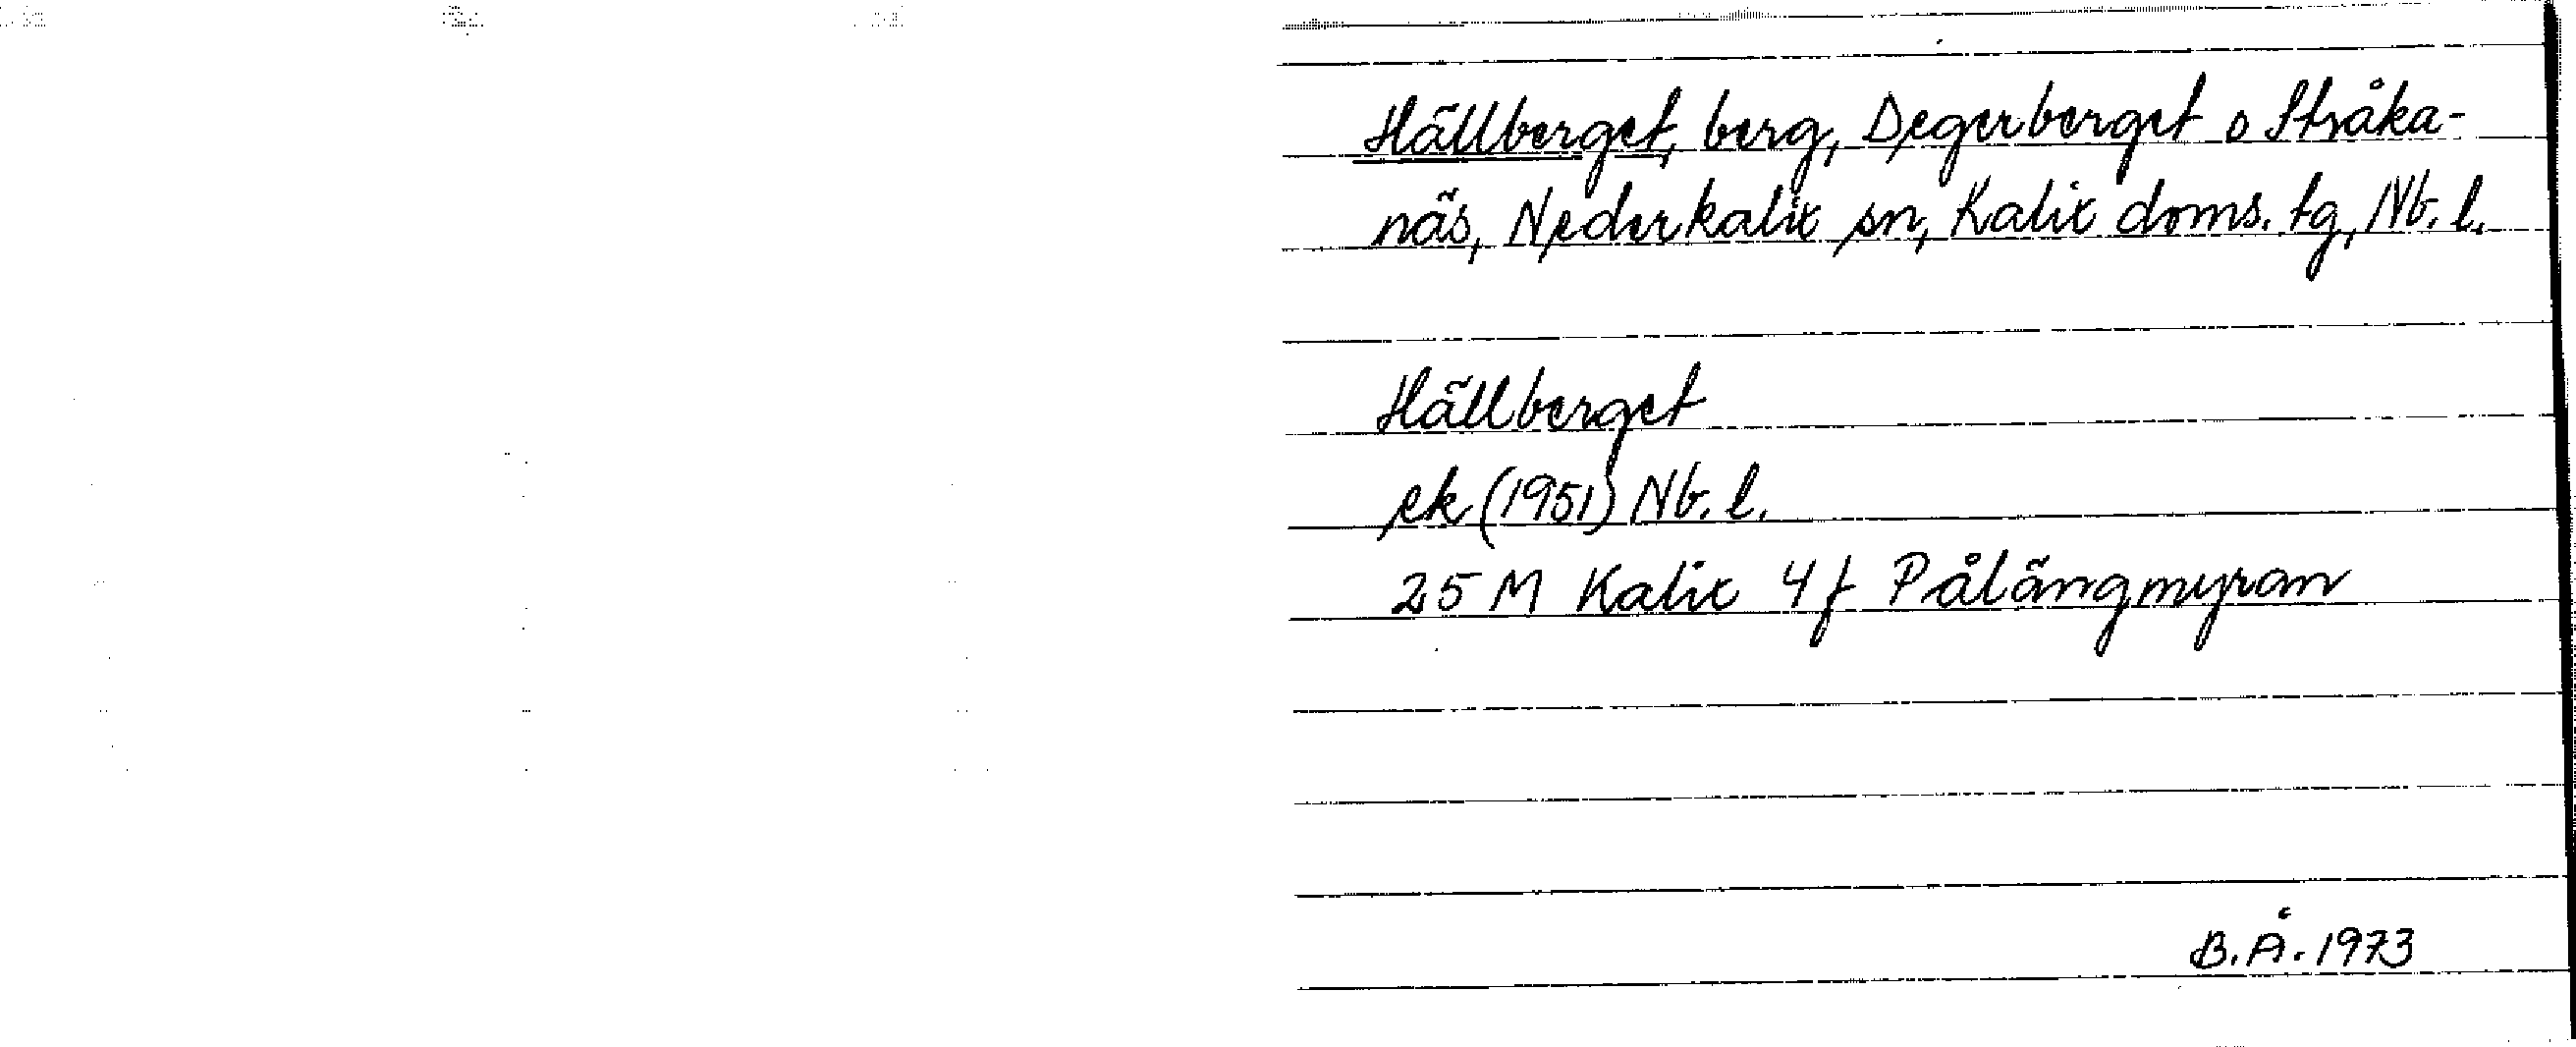 Hällberget, berg, Degerberget o Stråka-
näs, Nederkalix sn, Kalix doms. tg, Nb. l.
Hällberget
ek (1951) Nb. l.
25 M Kalix 4 f Pålängmyran
B. Å. 1973